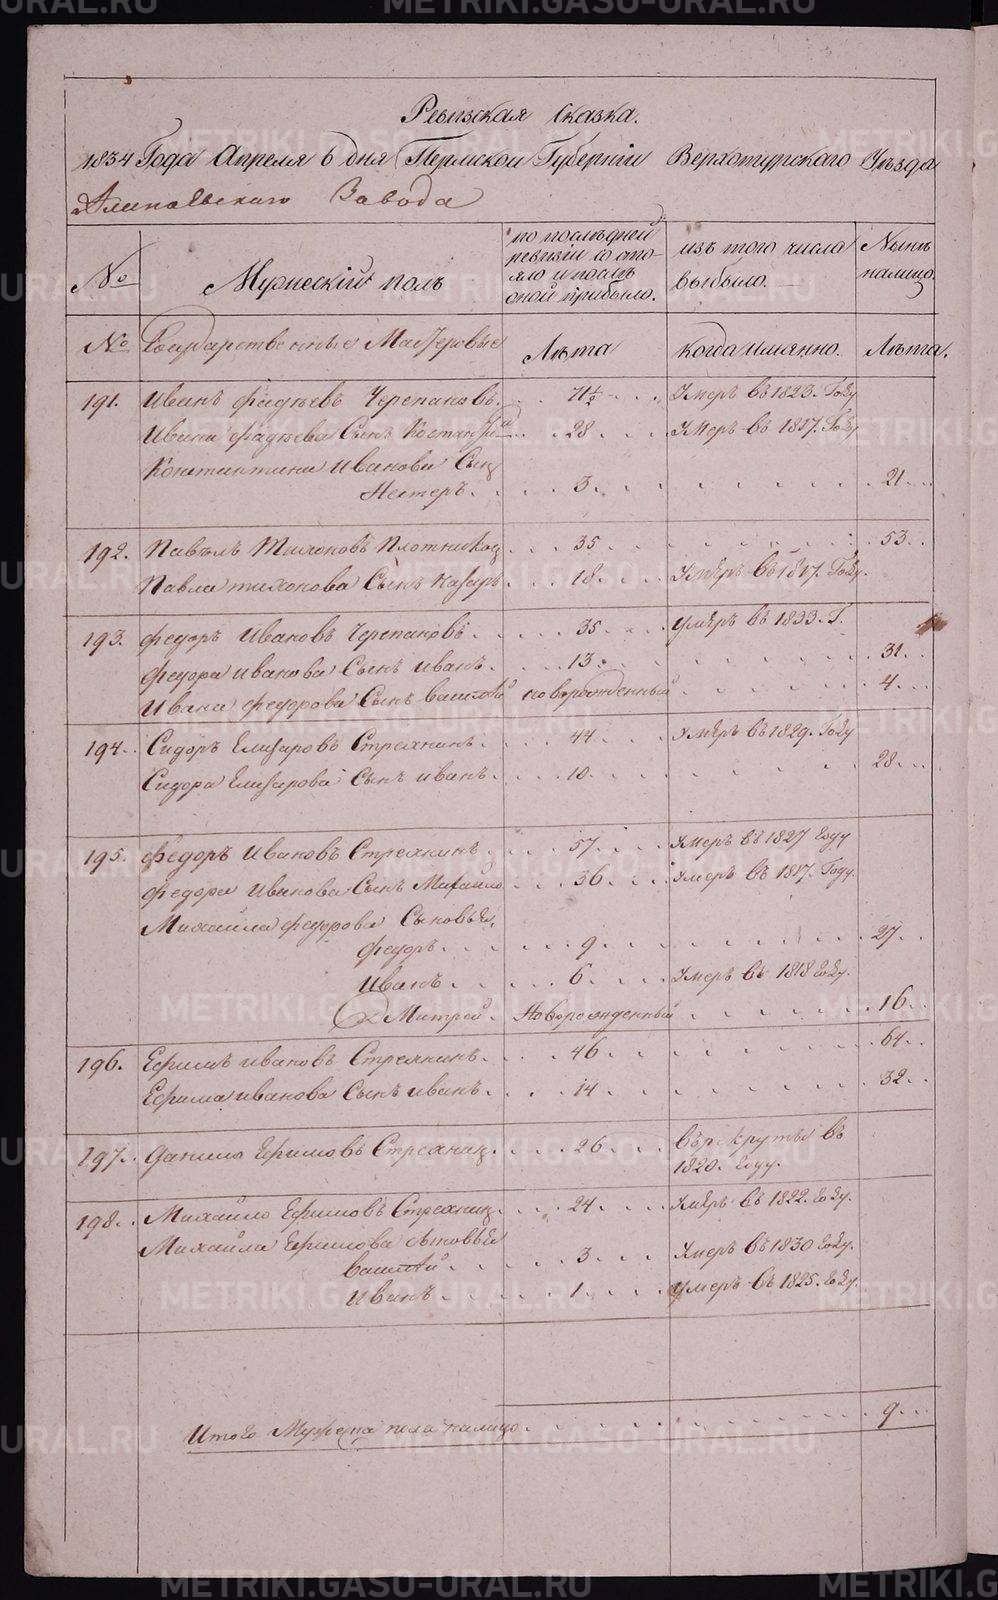 METRIKI.GASO-URAL.RU
Ревизская Сказка.
1834 Года Апреля 6 дня Пермской Губернии Верхотурского Уезда
Алапаевскаго Завода
№
Мужескій полъ
по послѣдней ревизіи состояло и послѣ оной прибыло.
изъ того числа выбыло.
Нынѣ налицо.
№ Государственные Мастеровые Лѣта когда имянно. Лѣта.
191. Иванъ фадѣевъ Черепановъ. 71½ Умеръ въ 1823. Году
Ивана фадѣева Сынъ Костантинъ 28 Умеръ въ 1817. Году
Константина Иванова Сынъ
Нестеръ. 3. 21
192. Павѣлъ Тихоновъ Плотников 35 53
Павла тихонова Сынъ Назаръ 18 Умѣръ въ 1817. Году.
193. федоръ Ивановъ Черепановъ 35 умѣръ въ 1833. Г.
федора иванова Сынъ иванъ. 13 31
Ивана федорова Сынъ васілій новорожденный 4
194. Сидоръ Елизаровъ Стряхнинъ. 44 умѣръ въ 1829. Году
Сидора Елизарова Сынъ иванъ. 10. 28
195. федоръ Ивановъ Стряхнинъ 57 Умеръ въ 1827 Году
федора Иванова Сынъ Михайло 36 Умеръ въ 1817. Году.
Михайла федорова Сыновья,
федоръ 9 27
Иванъ 6 Умеръ въ 1818 Году.
Дмитрей. Новорожденный 16
196. Ефимъ ивановъ Стряхнинъ. 46 64
Ефима иванова Сынъ иванъ. 14 32
197. Данило Ефимовъ Стряхнин. 26 въ рекруты въ
1820. Году.
198. Михайло Ефимовъ Стряхнин. 24 Умѣръ въ 1822. Году.
Михайла Ефимова Сыновья
васілій 3 Умеръ въ 1830 Году.
Иванъ 1 Умеръ въ 1825. Году.
Итого Мужеска пола налицо 9